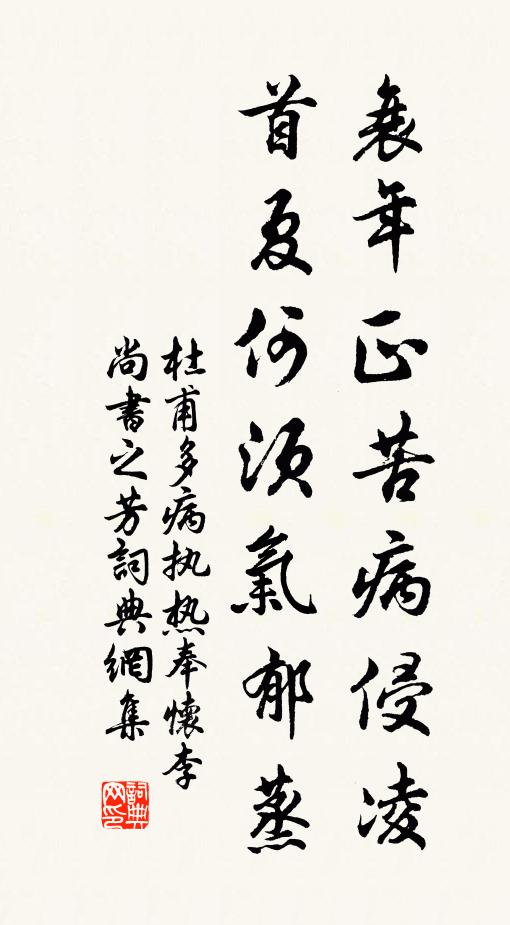 衰年正苦病侵凌
首夏何須氣郁蒸
杜甫多病执热奉懷李
尚書之芳詞典網集
詞典网印